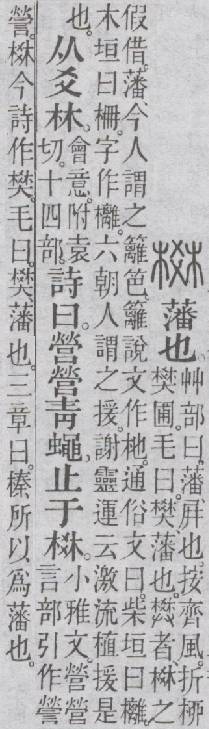 棥藩也艸部曰。藩、屏也。按齊風。折桺
樊圃。毛曰。樊、藩也。樊者、棥之
假借。藩、今人謂之籬笆。籬說文作杝。通俗文曰。柴垣曰㰚。
木垣曰柵。字作㰚。六朝人謂之援。謝靈運云激流植援是
也。从爻林。會意。附袁切。十四部。詩曰。營營靑蠅。止于棥。小雅文。營營言部引作謍
謍。棥今詩作樊。毛曰。樊、藩也。三章曰。榛所以爲藩也。